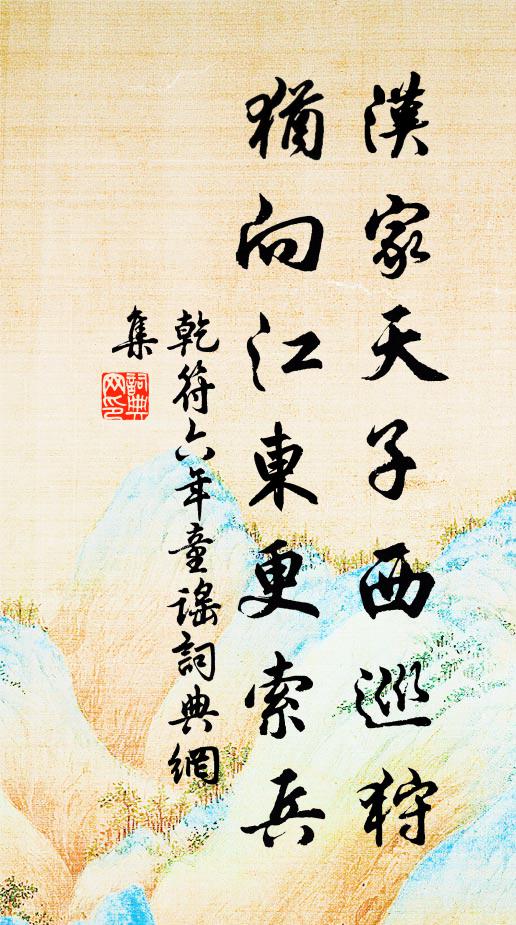 漢家天子西巡狩
猶向江東更索兵
乾符六年童謠詞典網
集
詞典
网印